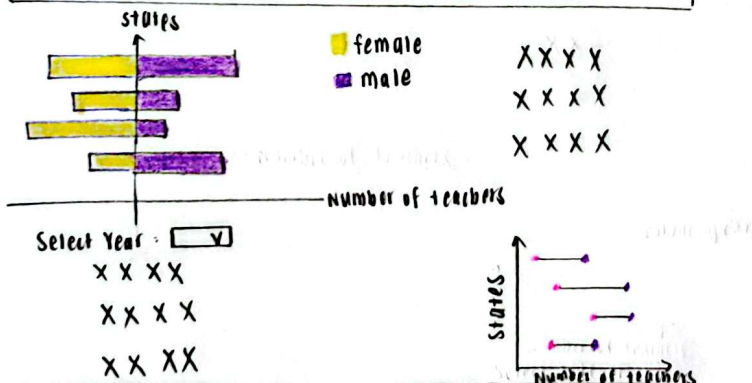 states
female
male
X X X X
X X X X
X X X X
Number of teachers
Select Year : V
X X X X
X X X X
X X X X
States
Number of teachers